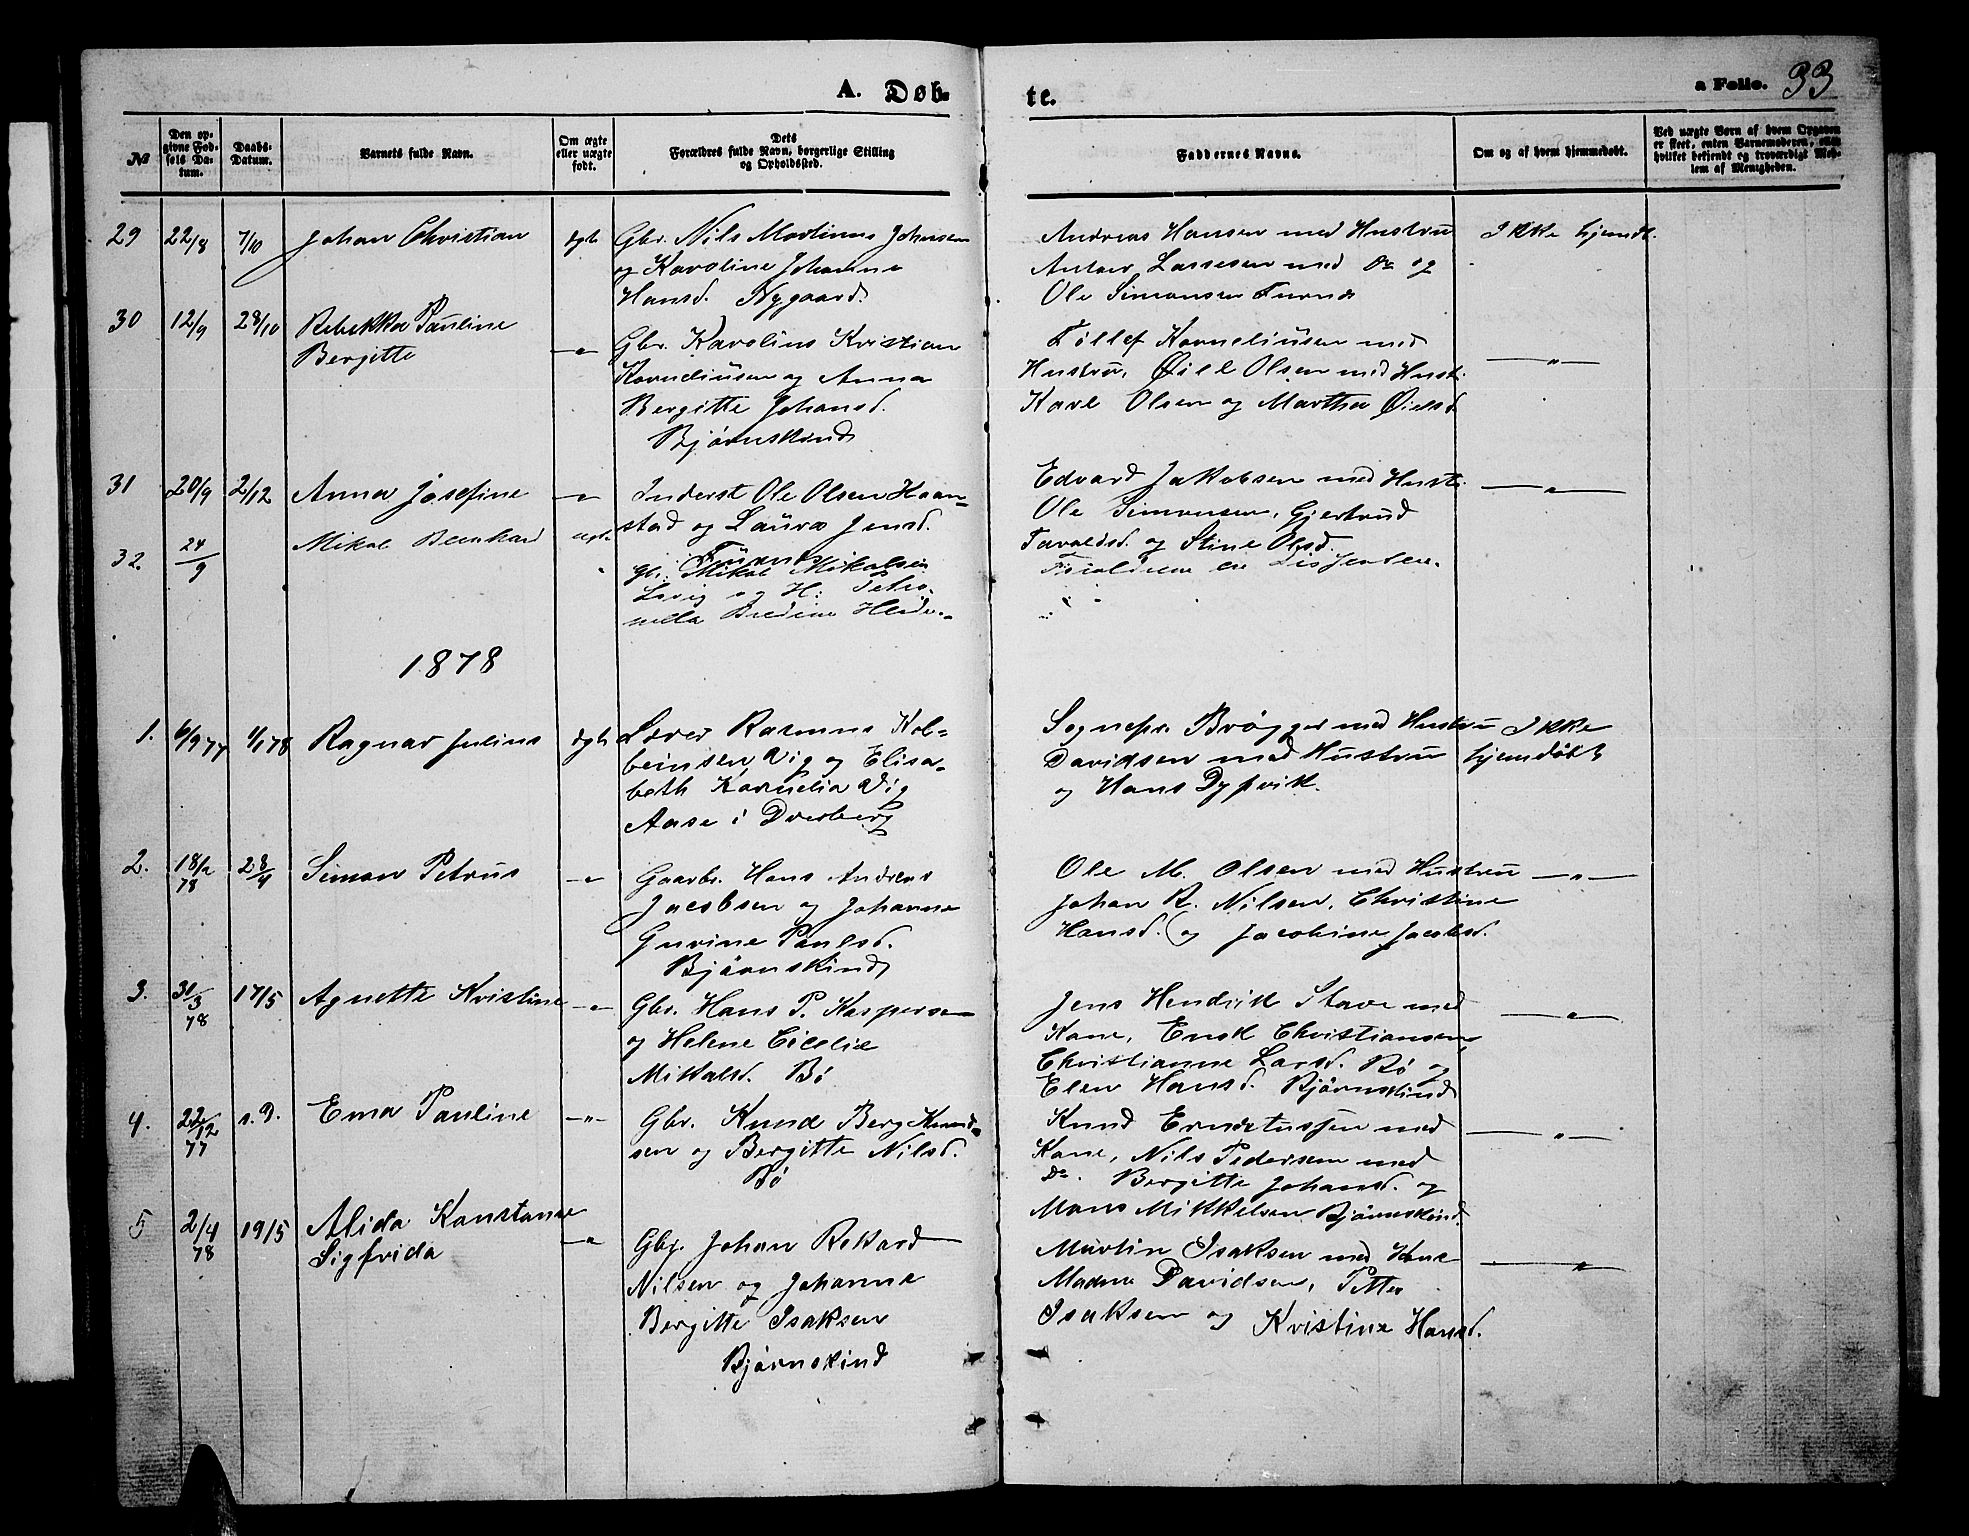 A. Døb-
te.
a Folio. 33
No
Den op-
givne Fød-
sels Da-
tum.
Daabs-
Datum.
Barnets fulde Navn.
Om ægte
eller uægte
født.
Dets
Forældres fulde Navn, borgerlige Stilling
og Opholdssted.
Faddernes Navne.
Om og af hvem hjemmedøbt.
Ved uægte Børn af hvem Opgaven
er skeet, enten Barnemoderen, eller
hvilket bekjendt og troværdigt Med-
lem af Menigheden.
29 22/8 7/10 Johan Christian ægte Gbr. Nils Martinus Johnsen
og Karoline Johanna
Hansd. Nygaard.
Andreas Hansen med Hustru
Lassesen med Do og
Ole Simonsen
Ikke hjemdt.
30 12/9 28/10 Rebekka Pauline
Bergitte
Gbr. Karolius Kristian
Korneliusen og Anna
Bergitte Johansd.
Bjørnskind
Tollef Korneliusen med
Hustru, Øiel Olsen med Hust.
Karl Olsen og Martha Øielsd
31 20/9 2/12 Anna Josefine
Inderst Ole Olsen Haan-
stad og Laura Jensd.
Edvard Jakobsen med Hust.
Ole Simonsen, Gjertrud
Tavaldsd. og Stine Olsd.
32. 24/9 Mikal Bernhard
Gbr. Mikal Mikalsen
og H: Petro-
nella
Forældrene ere Dissentere.
1878
1. 6/9 77 1/1 78 Ragnar Julius ægte Lærer Rasmus Kol-
beinsen Vig og Elisa-
beth Kornelia Vig
Aase i Dverberg
Sognepr. Brøgger med Hustru
Davidsen med Hustru
og Hans Dypvik.
Ikke
hjemdøbt
2. 18/2 78 28/4 Simon Petrus
Gaarbr. Hans Andreas
Jacobsen og Johanna
Gurine Paulsd.
Bjørnskind
Ole M. Olsen med Hustru
Johan R. Nilsen, Christine
Hansd. og Jacobine Jacobsd.
3. 31/3 78 17/5 Agnette Kristine
Gbr. Hans P. Kaspersen
og Helene Cicelie
Mikkalsd. Bø
Jens Hendrik Stave med
Kone, Enok Christiansen,
Christianne Larsd. Bø og
Elen Hansd. Bjørnskind
4. 22/12 77 s.D. Ema Pauline
Gbr. Knud Berg Knud-
sen og Bergitte Nilsd.
Bø
Knud med
Kone, Nils Pedersen med
Do. Bergitte Johansd. og
Mons Mikkelsen Bjørnskind.
5 2/4 78 19/5 Alida Konstanse
Sigfrida
Gbr. Johan Rikard
Nilsen og Johanna
Bergitte Isaksen
Bjørnskind
Martin Isaksen med Kone
Madme Davidsen, Petter
Isaksen og Kristine Hansd.